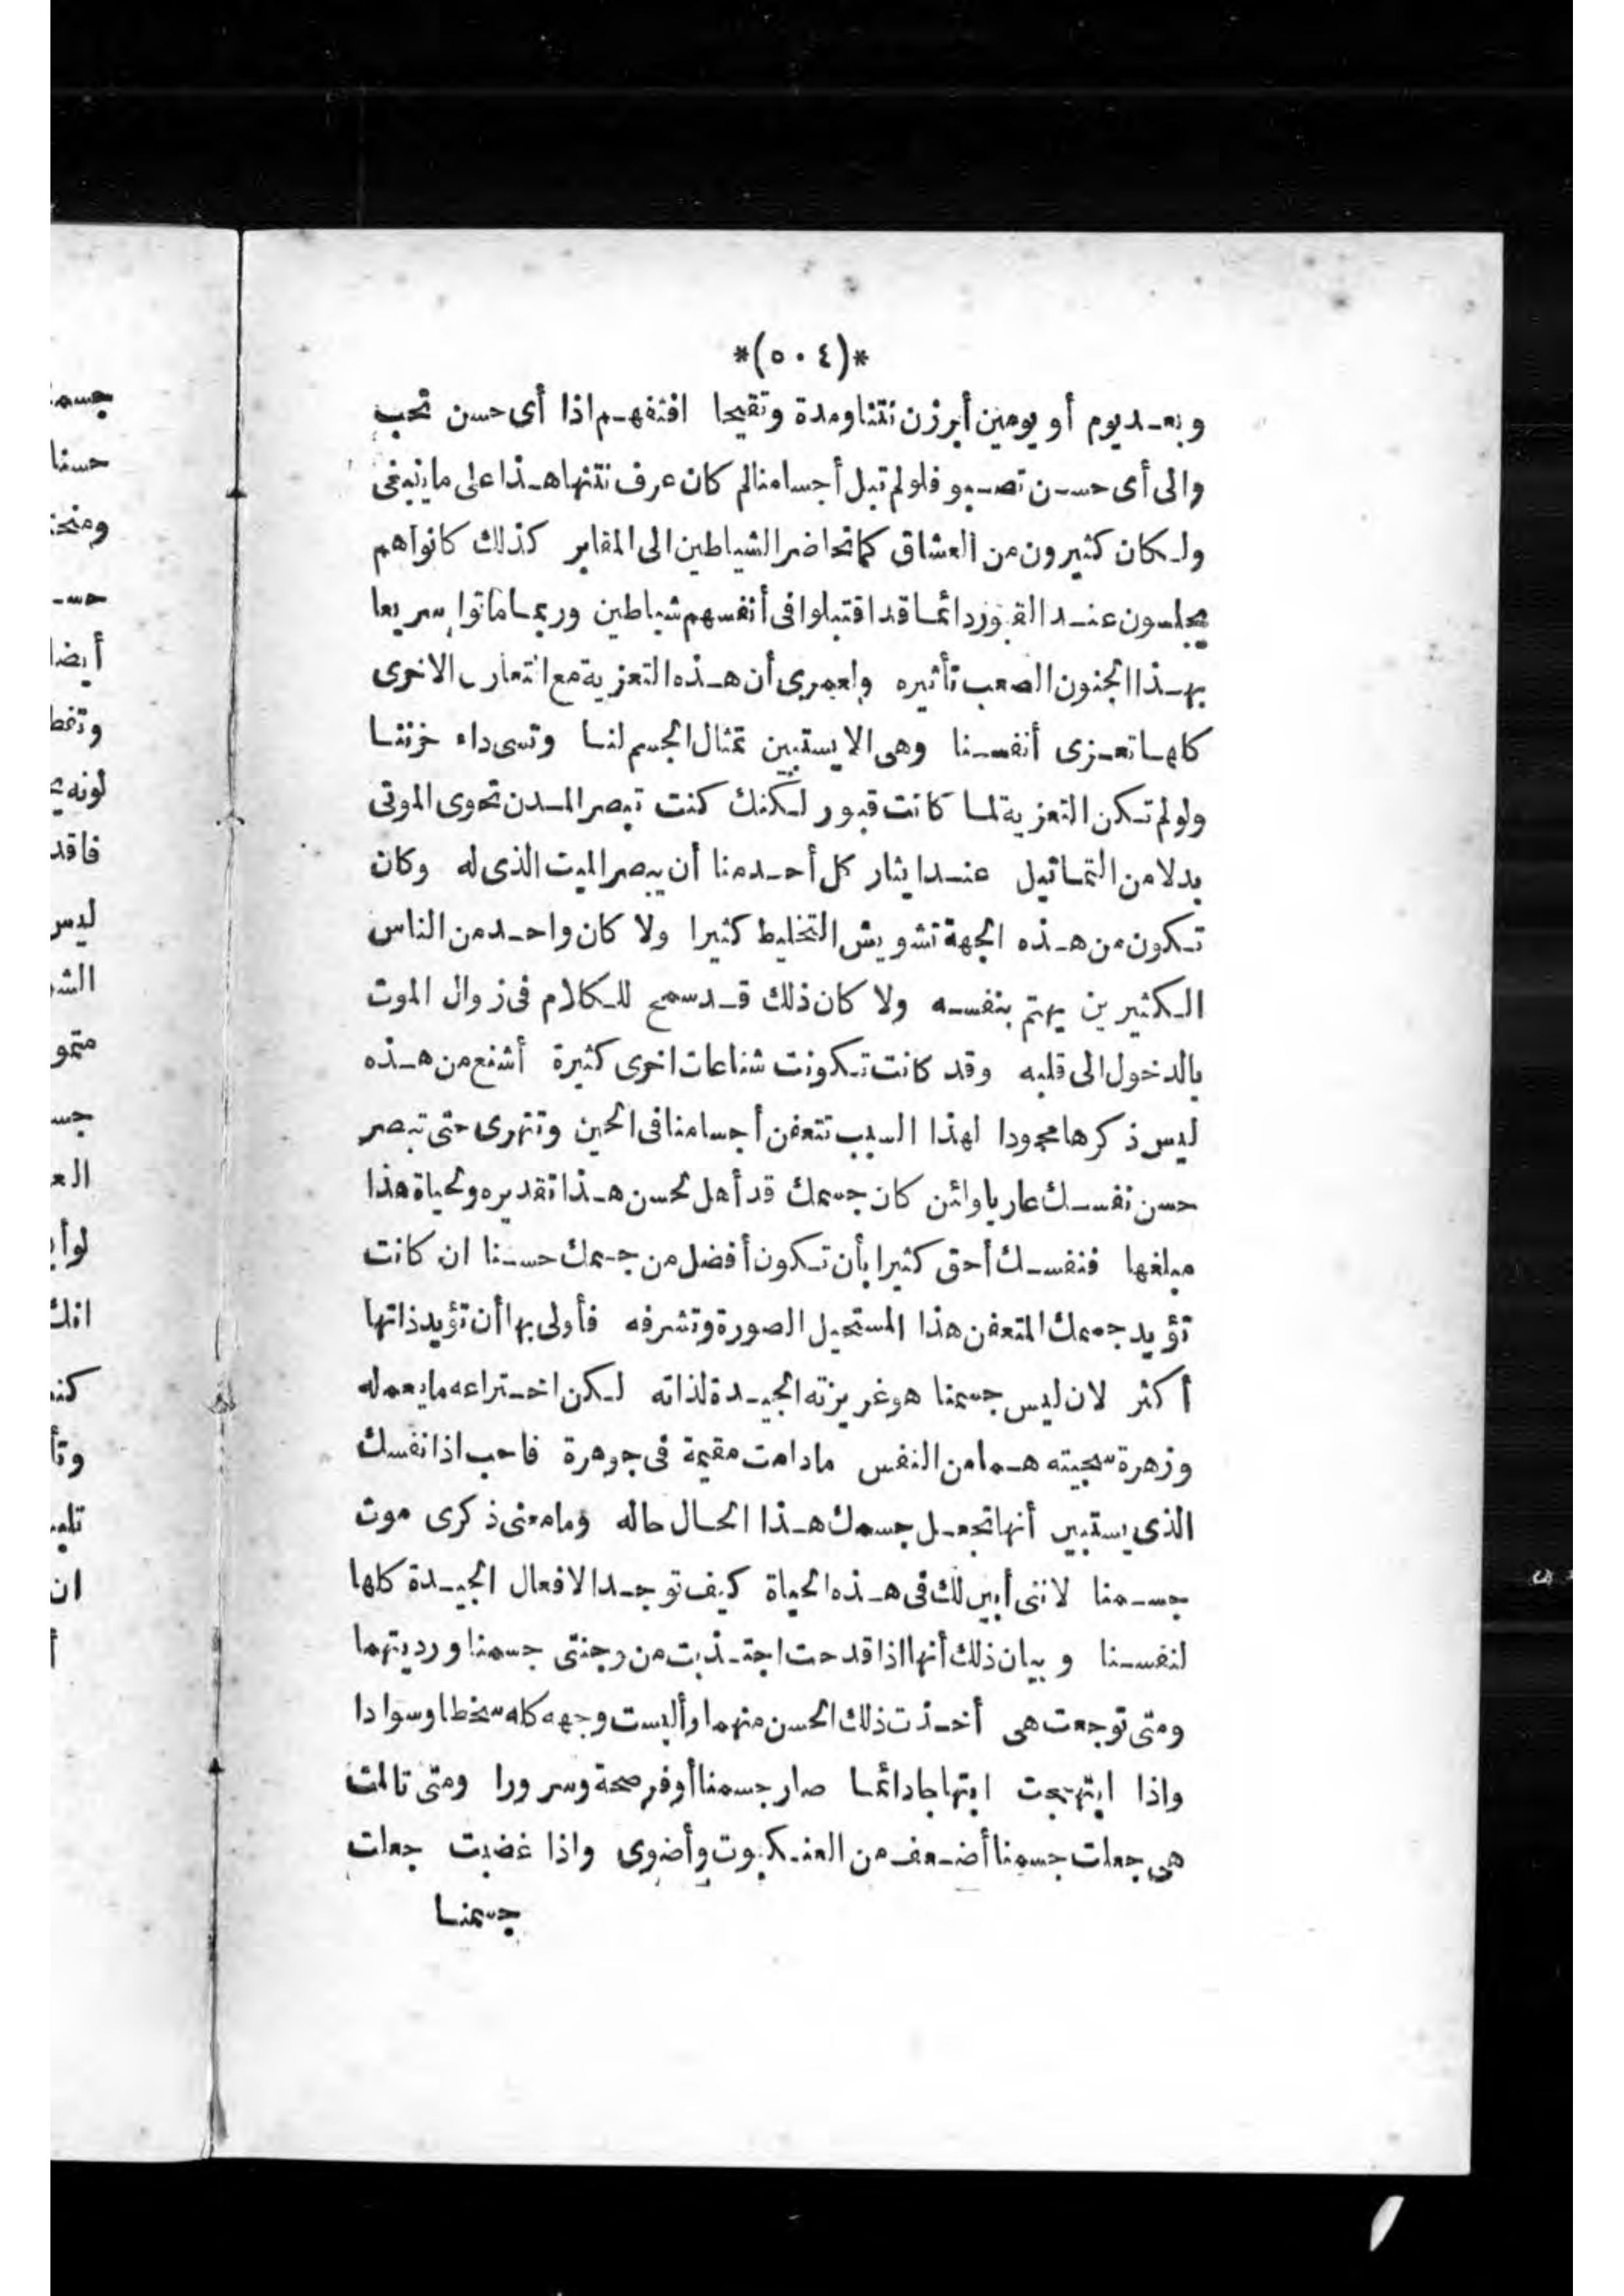 *(٥٠٤)*
وبعد يوم أو يومين أبرزن نتنا ومدة وتقيحا افتفهم اذا أى حسن تحب
والى أى حسن تصبو فلو لم تبل أجسامنا لم كان عرف نتنها هذا على ما ينبغى
ولكان كثيرون من العشاق كما تحاضر الشياطين الى المقابر كذلك كانوا هم
يجلسون عند القبور دائما قد اقتبلوا فى أنفسهم شياطين وربما ماتوا سريعا
بهذا الجنون الصعب تأثيره ولعمرى أن هذه التعزية مع التعازى الاخرى
كلها تعزى أنفسنا وهى الا يستبين تمثال الجسم لنا وتسى داء حزننا
ولو لم تكن التعزية لما كانت قبور لكنك كنت تبصر المدن تحوى الموتى
بدلا من التماثيل عند ايثار كل أحد منا أن يبصر الميت الذى له وكان
تكون من هذه الجهة تشويش التخليط كثيرا ولا كان واحد من الناس
الكثيرين يهتم بنفسه ولا كان ذلك قد سمح للكلام فى زوال الموت
بالدخول الى قلبه وقد كانت تكونت شناعات اخرى كثيرة أشنع من هذه
ليس ذكرها محمودا لهذا السبب تتعفن أجسامنا فى الحين وتتهرى حتى تبصر
حسن نفسك عاريا وائن كان جسمك قد أهل لحسن هذا تقديره ولحياة هذا
مبلغها فنفسك أحق كثيرا بأن تكون أفضل من جسمك حسنا ان كانت
تؤيد جسمك المتعفن هذا المستحيل الصورة وتشرفه فأولى بها أن تؤيد ذاتها
أكثر لان ليس جسمنا هو غريزته الجيدة لذاته لكن اختراعه ما يعمله
وزهرة سجيته هما من النفس مادامت مقيمة فى جوهرة فاحب اذا نفسك
الذى يستبين أنها تجعل جسمك هذا الحال حاله وما معنى ذكرى موت
جسمنا لاننى أبين لك فى هذه الحياة كيف توجد الافعال الجيدة كلها
لنفسنا وبيان ذلك أنها اذا قدحت اجتذبت من وجنتى جسمنا ورديتهما
ومتى توجعت هى أخذت ذلك الحسن منهما وألبست وجهه كله سخطا وسوادا
واذا ابتهجت ابتهاجا دائما صار جسمنا أوفر صحة وسرورا ومتى تالمت
هى جعلت جسمنا أضعف من العنكبوت وأضوى واذا غضبت جعلت
جسمنا